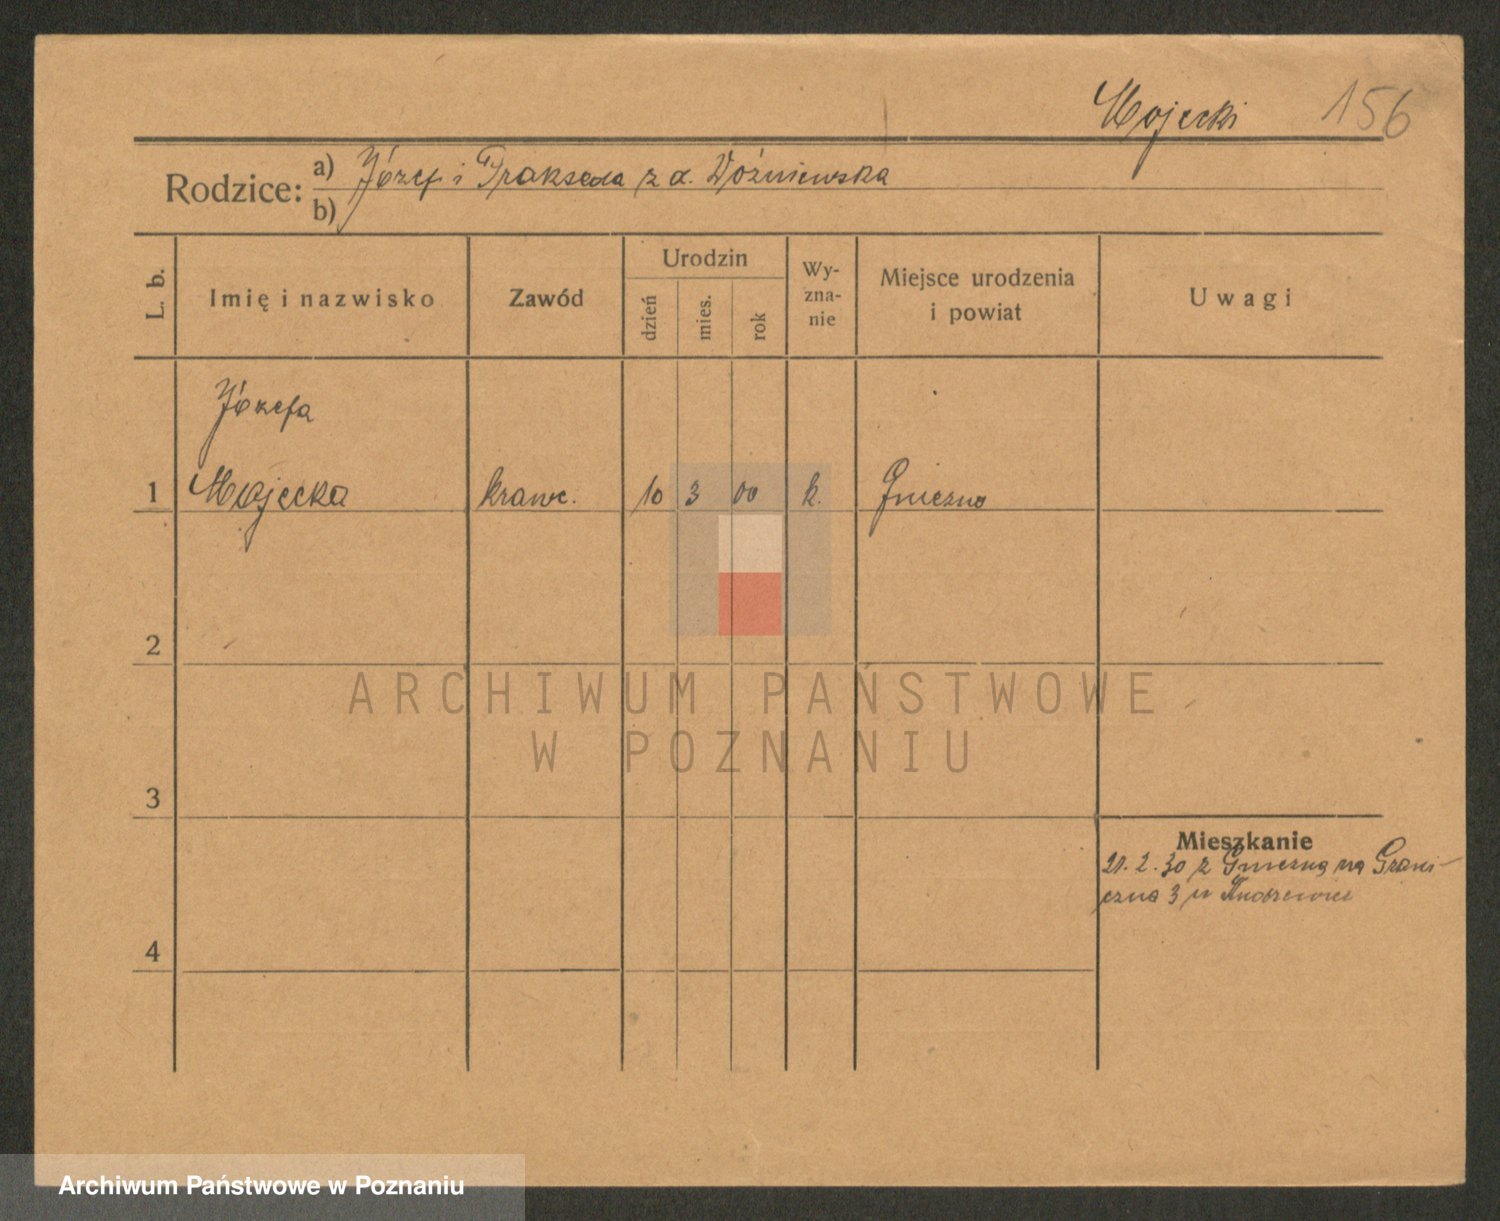 Mojecki 156
Rodzice: a) Józef i Prakseda z d. Woźniewska
b)
L. b. Imię i nazwisko Zawód Urodzin dzień mies. rok Wy-zna-nie Miejsce urodzenia i powiat Uwagi
Józefa
1 Mojecka krawc. 10 3 00 k. Gniezno
2
ARCHIWUM PAŃSTWOWE
W POZNANIU
3
Mieszkanie
21.2.30 z Gniezna na Grani-
czna 3 u
4
Archiwum Państwowe w Poznaniu